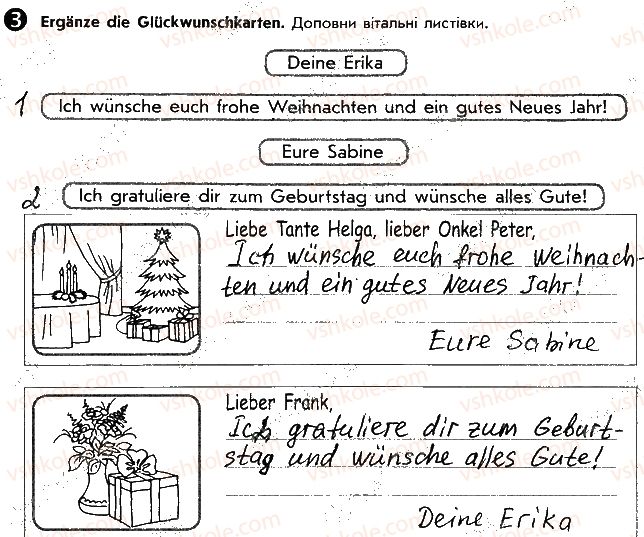 3 Ergänze die Glückwunschkarten. Доповни вітальні листівки.
Deine Erika
1 Ich wünsche euch frohe Weihnachten und ein gutes Neues Jahr!
Eure Sabine
2 Ich gratuliere dir zum Geburtstag und wünsche alles Gute!
Liebe Tante Helga, lieber Onkel Peter,
Ich wünsche euch frohe Weihnach-
ten und ein gutes Neues Jahr!
Eure Sabine
Lieber Frank,
Ich gratuliere dir zum Geburt-
stag und wünsche alles Gute!
Deine Erika
vshkole.com